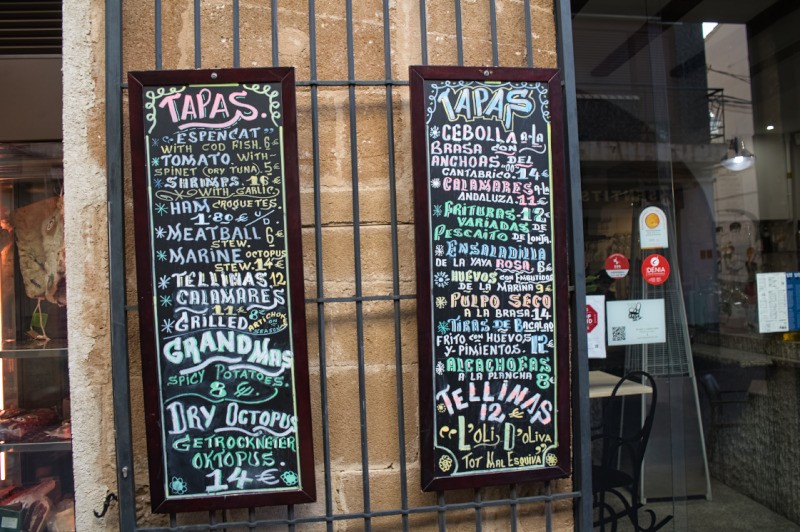 TAPAS.
"ESPENCAT"
WITH COD FISH. 6€
*TOMATO. WITH-
SPINET (DRY TUNA). 5€
*SHRIMPS. 16
WITH GARLIC €
*HAM CROQUETTES.
1·80 €
*MEATBALL 6
STEW. €
*MARINE OCTOPUS
STEW. 14€
*TELLINAS 12
*CALAMARES €
11€
*GRILLED 8€ ARTICHOK
GRANDMAS
SPICY POTATOES.
8€
DRY OCTOPUS
GETROCKNEIER
OKTOPUS.
14€
TAPAS
*CEBOLLA A-LA
BRASA CON
ANCHOAS DEL
CANTABRICO. 14€
*CALAMARES A LA
ANDALUZA. 11€
*FRITURAS-12
VARIADAS €
PESCAITO DE LONJA.
*ENSALADILLA
DE LA YAYA ROSA, 6€
*HUEVOS CON EMBUTIDOS
DE LA MARINA 9€
*PULPO SECO
A LA BRASA. 14€
*TIRAS DE BACALAO
FRITO CON HUEVOS
Y-PIMIENTOS. 12€
*ALCACHOFAS
A LA PLANCHA 8€
*TELLINAS
12€
"L'OLI D'OLIVA
TOT MAL ESQUIVA"
DÉNIA